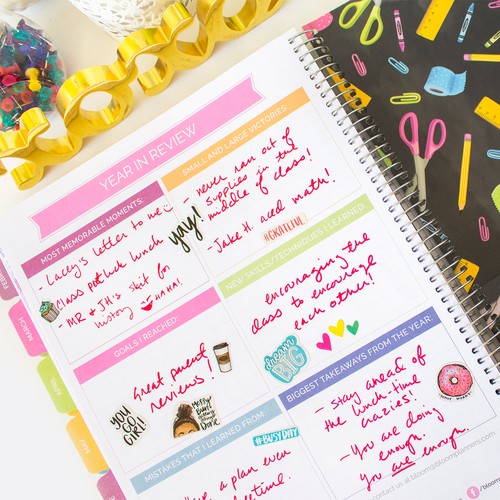 YEAR IN REVIEW
MOST MEMORABLE MOMENTS:
- Lacey's letter to me
- Class potluck lunch
- MR & JH's skit for
history HAHA!
yay!
SMALL AND LARGE VICTORIES:
- never ran out of
supplies in the
middle of class!
- Jake H. aced math!
#GRATEFUL
GOALS I REACHED:
Great parent
reviews!
YOU
GO
GIRL!
MESSY
BUN
&
Getting
Stuff
Done
NEW SKILLS/TECHNIQUES I LEARNED:
encouraging the
class to encourage
each other!
dream
BIG
MISTAKES THAT I LEARNED FROM:
Have a plan even
#BUSYDAY
BIGGEST TAKEAWAYS FROM THE YEAR:
- Stay ahead of
the lunch-time
crazies!
- You are doing
enough.
You are enough.
MARCH
APRIL
MAY
contact us at bloom@bloomplanners.com
/bloom